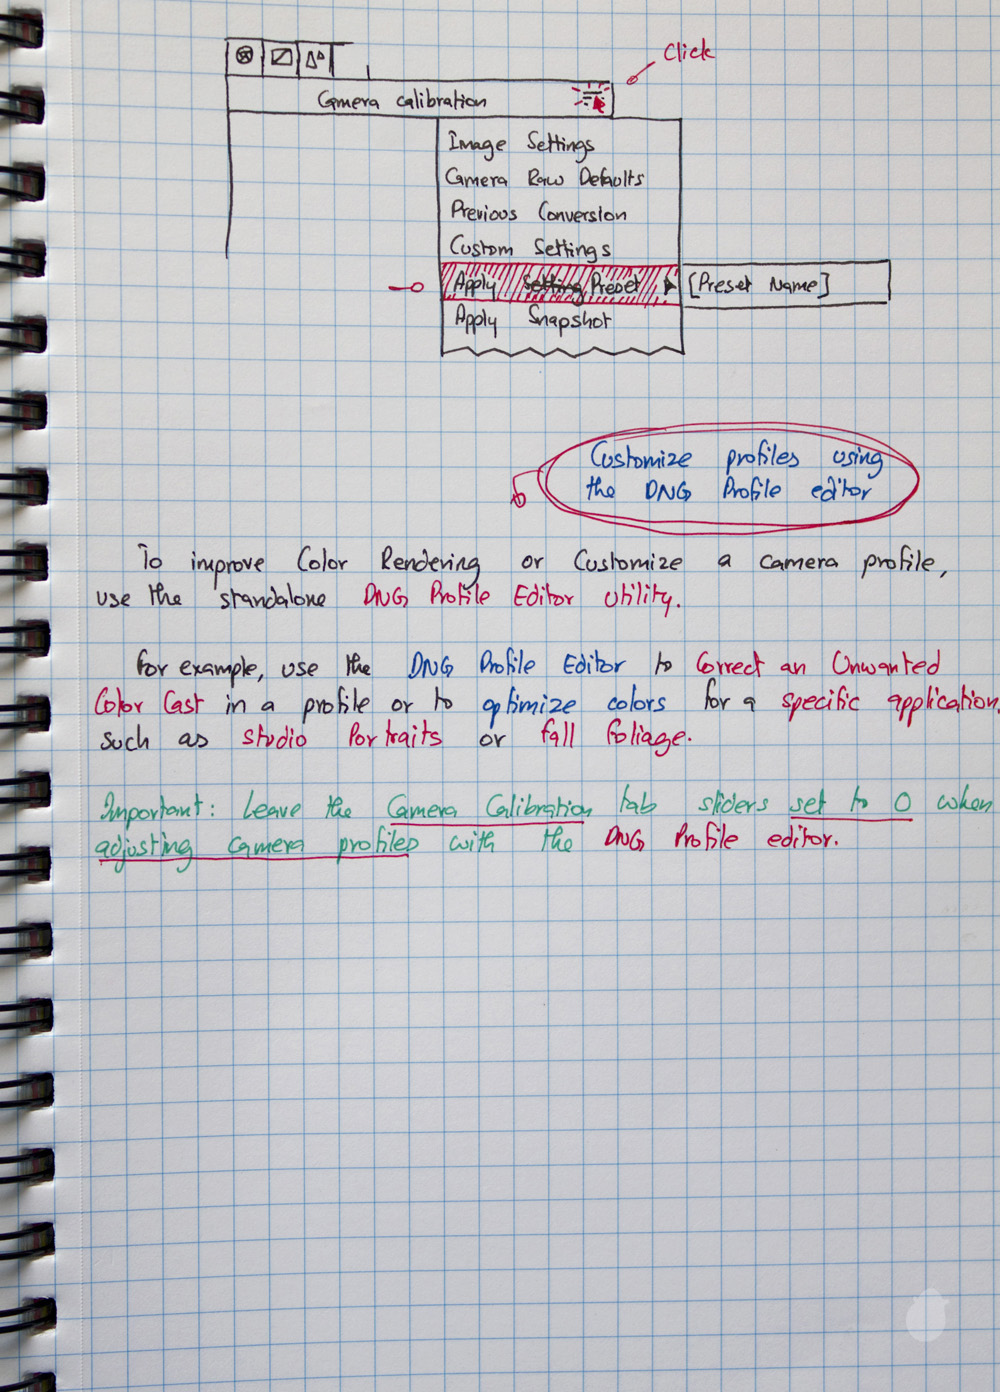 Click
Camera calibration
Image Settings
Camera Raw Defaults
Previous Conversion
Custom Settings
Apply Setting Preset [Preset Name]
Apply Snapshot
Customize profiles using
the DNG Profile editor
To improve Color Rendering or Customize a camera profile,
use the standalone DNG Profile Editor Utility.
For example, use the DNG Profile Editor to Correct an Unwanted
Color Cast in a profile or to optimize colors for a specific application,
such as studio Portraits or fall foliage.
Important: Leave the Camera Calibration tab sliders set to 0 when
adjusting camera profiles with the DNG Profile editor.